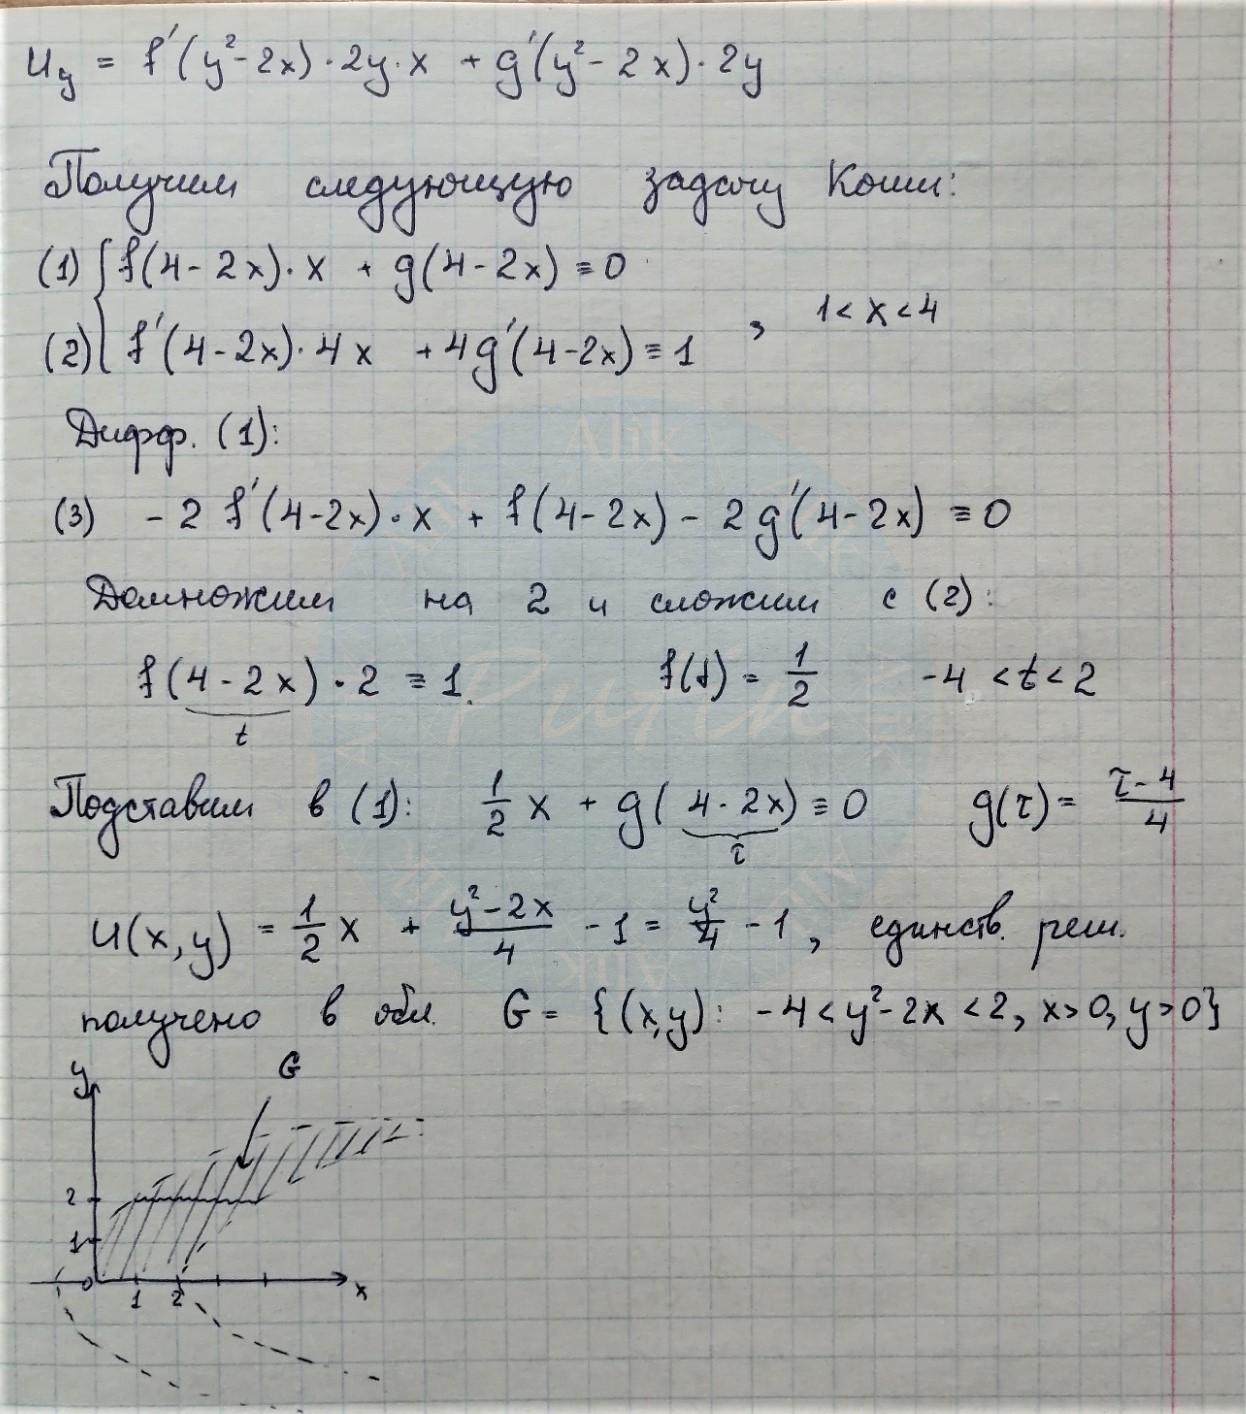 u_y = f'(y²-2x)·2y·x + g'(y²-2x)·2y
Получим следующую задачу Коши:
(1) { f(4-2x)·x + g(4-2x) ≡ 0
(2) { f'(4-2x)·4x + 4g'(4-2x) ≡ 1 , 1<x<4
Дифф. (1):
(3) -2 f'(4-2x)·x + f(4-2x) - 2g'(4-2x) ≡ 0
Домножим на 2 и сложим с (2):
f(4-2x)·2 ≡ 1. f(t) = 1/2 -4 <t< 2
t
Подставим в (1): 1/2 x + g(4-2x) ≡ 0 g(τ) = (τ-4)/4
τ
u(x,y) = 1/2 x + (y²-2x)/4 - 1 = y²/4 - 1, единств. реш.
получено в обл. G = {(x,y): -4<y²-2x<2, x>0, y>0}
y G
2
1
0 1 2 x
Alik
Putin